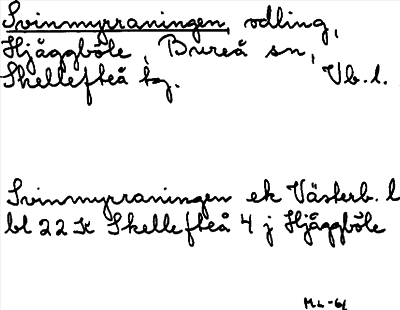 Svinmyrraningen, odling,
Hjåggböle, Bureå sn,
Skellefteå tg. Vb. l.
Svinmyrraningen ek Västerb. l
bl 22 K Skellefteå 4 j Hjåggböle